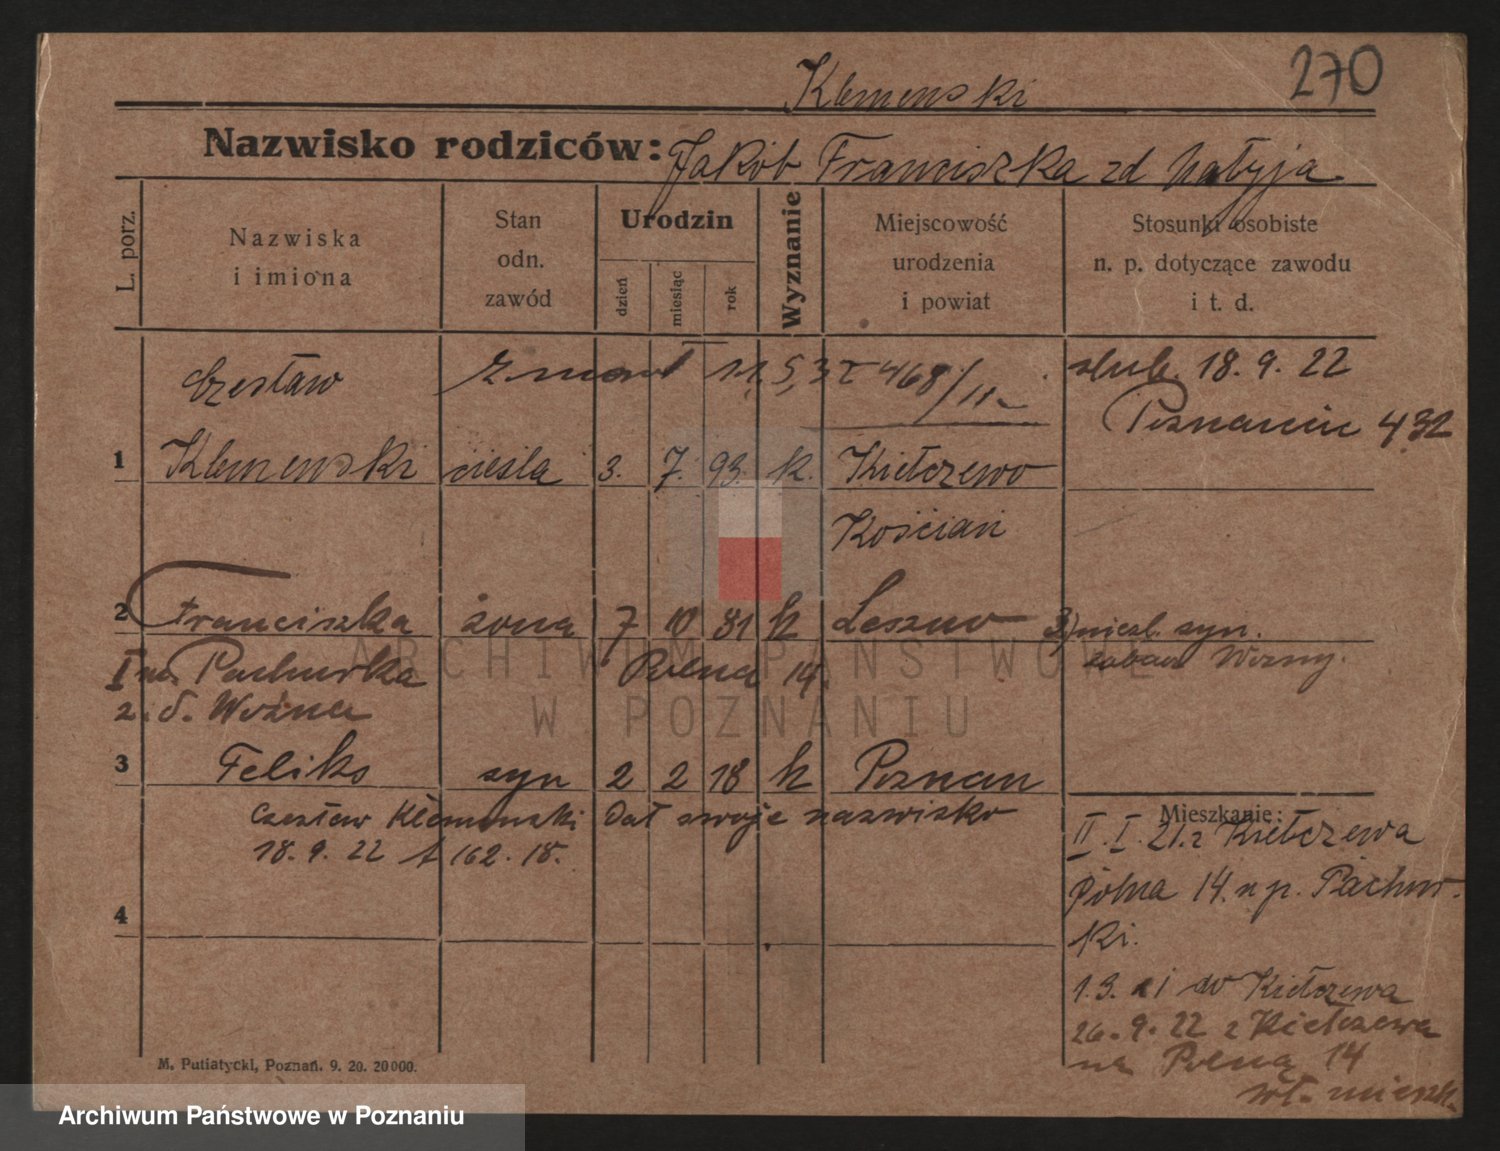 270
Klemenski
Nazwisko rodziców: Jakób Franciszka zd
L. porz.
Nazwiska
i imiona
Stan
odn.
zawód
Urodzin
dzień
miesiąc
rok
Wyznanie
Miejscowość
urodzenia
i powiat
Stosunki osobiste
n. p. dotyczące zawodu
i t. d.
Czesław zmarł 11.5.32 468/11 ślub. 18.9.22
Poznaniu 432
1 Klemenski cieśla 3. 7. 93. k. Kiełczewo
Kościan
2 Franciszka żona 7 10 81 k Leszno 3) nieśl. syn.
I Pachurka Polna 14. zobacz Wozny.
z. d. Woźna
3 Feliks syn 2 2 18 k Poznan
Czesław Klemenski dał swoje nazwisko
18.9.22 162.18.
4
Mieszkanie:
II. I. 21. z Kiełczewa
Polna 14. n p. Pachur-
ki.
1.3. do Kiełczewa
26.9.22 z Kiełczewa
na Polną 14
wł. mieszk.
M. Putiatycki, Poznań. 9. 20. 20000.
ARCHIWUM PAŃSTWOWE
W POZNANIU
Archiwum Państwowe w Poznaniu